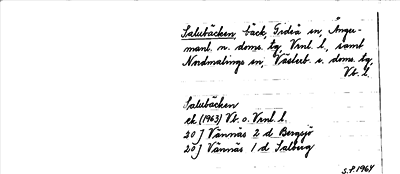 Salubäcken, bäck, Gideå sn, Ånger-
manl. n. doms. tg, Vrnl. l., samt
Nordmalings sn, Västerb. s. doms. tg,
Vb. l.
Salubäcken
ek (1963) Vb. o. Vrnl. l.
20 J Vännäs 2 d Bergsjö
20 J Vännäs 1 d Salberg
S.F. 1964